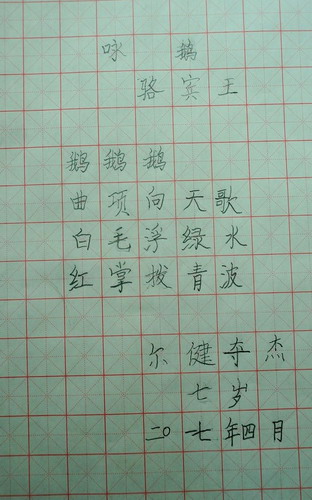 咏鹅
骆宾王
鹅鹅鹅
曲项向天歌
白毛浮绿水
红掌拨青波
尔健夺杰
七岁
二〇一七年四月